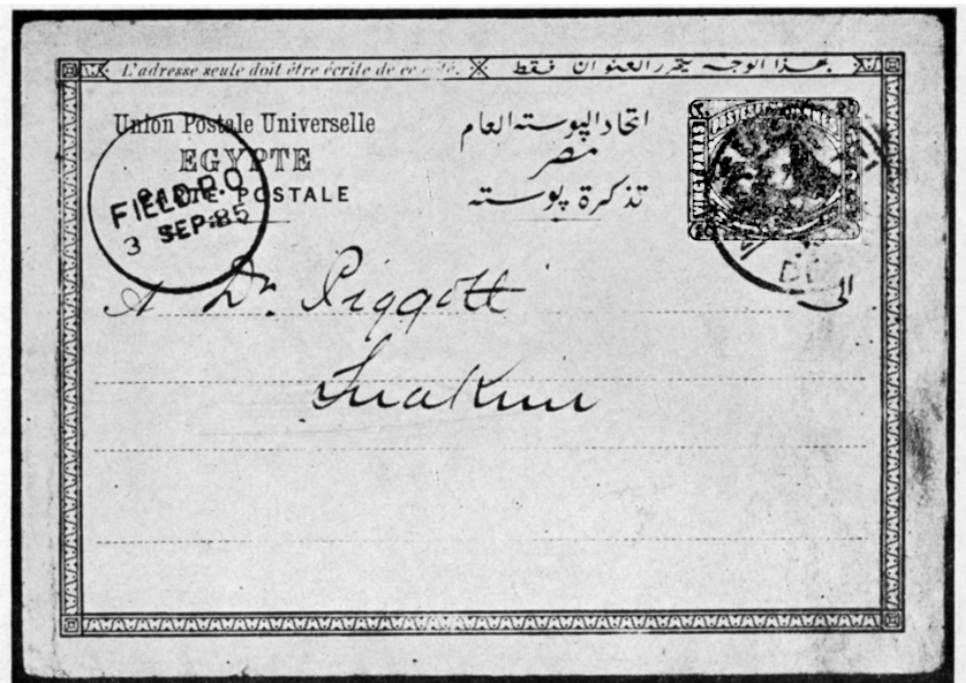 L'adresse seule doit être écrite de ce côté. بهذا الوجه يتحرر العنوان فقط
Union Postale Universelle
EGYPTE
CARTE POSTALE
اتحاد البوسته العام
مصر
تذكرة بوسته
POSTES EGYPTIENNES
VINGT PARAS
FIELD P.O
3 SEP:85
الى
A Dr. Piggott
Suakim